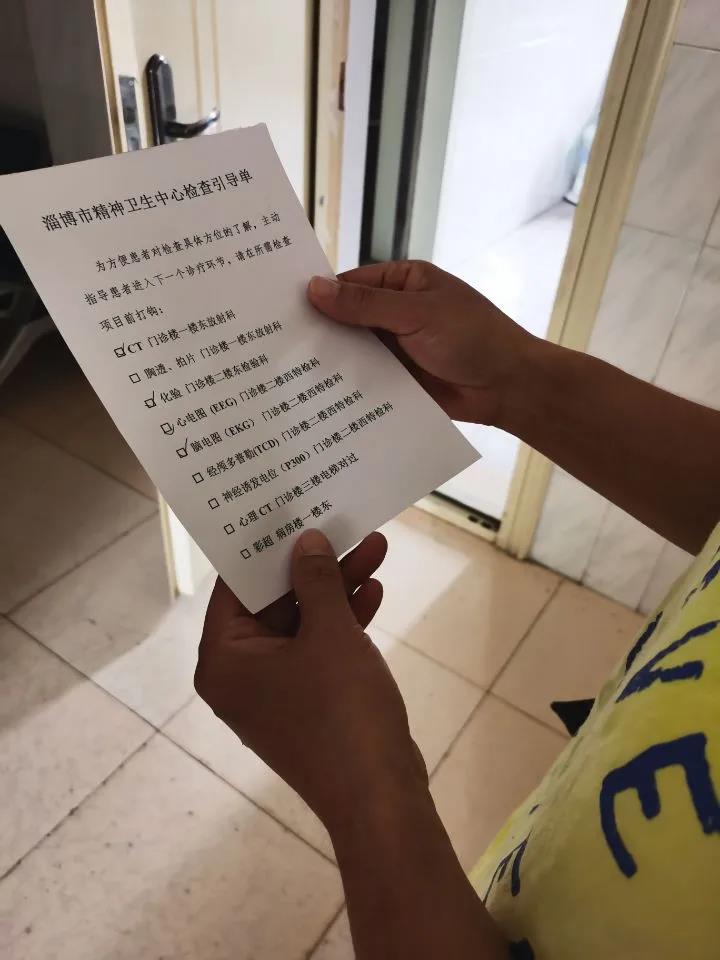 淄博市精神卫生中心检查引导单
为方便患者对检查具体方位的了解，主动
指导患者进入下一个诊疗环节，请在所需检查
项目前打钩：
☑CT 门诊楼一楼东放射科
□ 胸透、拍片 门诊楼一楼东放射科
☑ 化验 门诊楼二楼东检验科
☑ 心电图 (EEG) 门诊楼二楼西特检科
☑ 脑电图（EKG） 门诊楼二楼西特检科
□ 经颅多普勒(TCD) 门诊楼二楼西特检科
□ 神经诱发电位（P300）门诊楼二楼西特检科
□ 心理 CT 门诊楼三楼电梯对过
□ 彩超 病房楼一楼东
VE
E